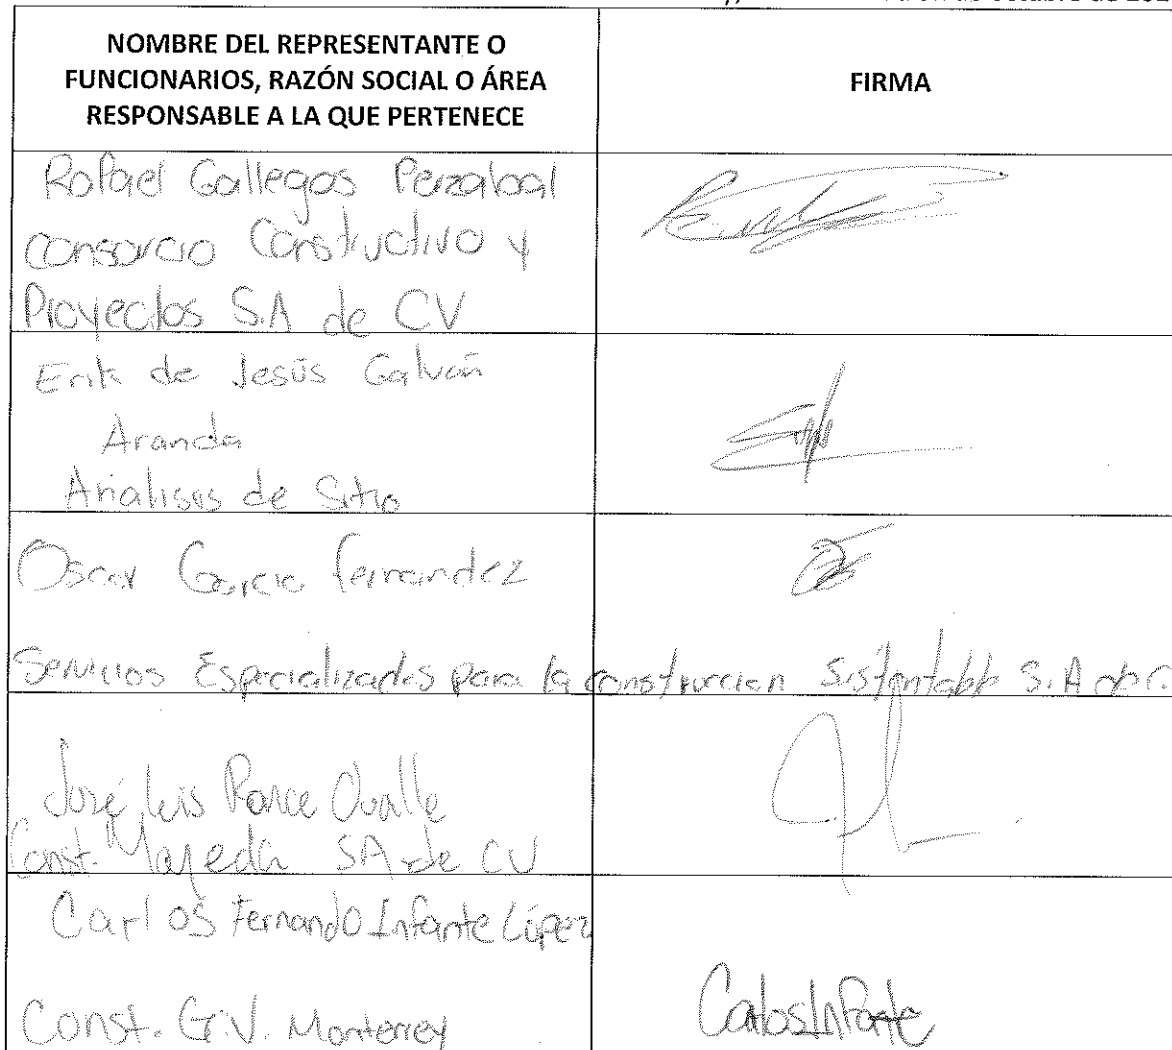 octubre de
NOMBRE DEL REPRESENTANTE O
FUNCIONARIOS, RAZÓN SOCIAL O ÁREA
RESPONSABLE A LA QUE PERTENECE
FIRMA
Rafael Gallegos
Consorcio Constructivo y
Proyectos S.A de CV
Erik de Jesús Galván
Aranda
Analisis de Sitio
Oscar Garcia Fernandez
Servicios Especializados para la construccion Sustentable S.A de C.
José Luis Ponce Ovalle
Const. SA de CV
Carlos Fernando Infante López
Const. G.V. Monterrey
Carlos Infante